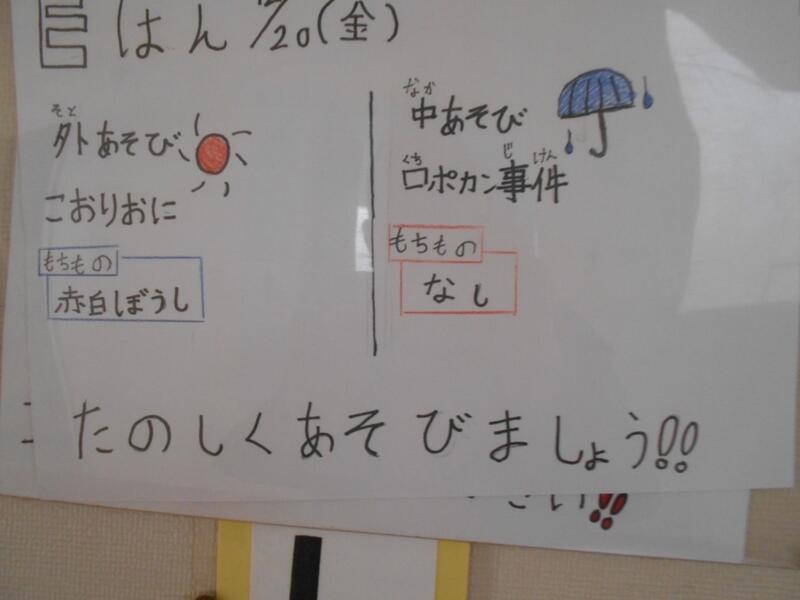 Eはん 1/20(金)
外あそび
そと
こおりおに
もちもの
赤白ぼうし
中あそび
なか
口ポカン事件
くち じ けん
もちもの
なし
たのしくあそびましょう!!
さい!!